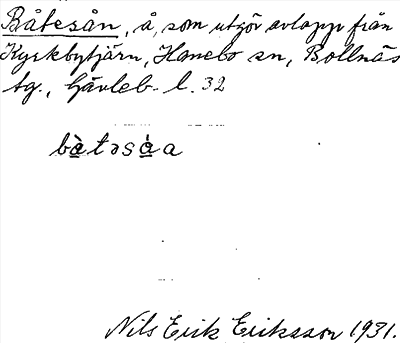 Båtesån, å, som utgör avlopp från
Kyrkbytjärn, Hanebo sn, Bollnäs
tg., Gävleb. l. 32
bà̲təsà̲a
Nils Erik Eriksson 1931.